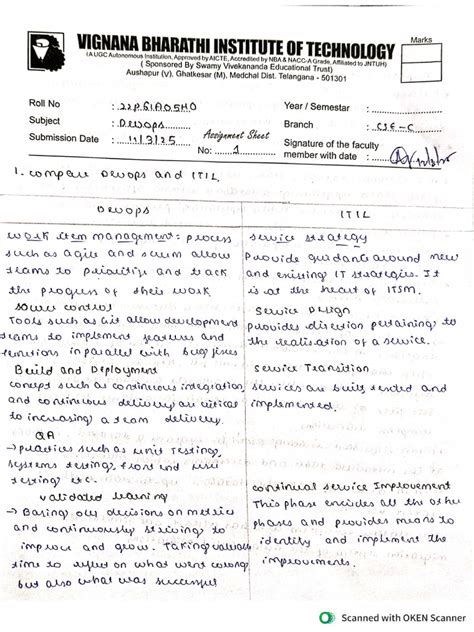 Marks
VIGNANA BHARATHI INSTITUTE OF TECHNOLOGY
(A UGC Autonomous Institution, Approved by AICTE, Accredited by NBA & NACC-A Grade, Affiliated to JNTUH)
( Sponsored By Swamy Vivekananda Educational Trust)
Aushapur (V), Ghatkesar (M), Medchal Dist. Telangana - 501301
Roll No : 22P61A05H0
Year / Semester :
Subject : Devops
Branch : CSE-C
Submission Date : 11/3/25
Assignment Sheet
No: 1
Signature of the faculty
member with date :
1. compare Devops and ITIL
Devops
work item management: process
such as agile and scrum allow
teams to prioritize and track
the progress of their work
source control
Tools such as Git allow development
teams to implement features and
functions in parallel with bug fixes
Build and Deployment
concept such as continuous integration
and continuous delivery are critical
to increasing a team delivery.
QA
→ practices such as unit testing,
systems testing, front end
testing etc.
validated learning
→ Basing our decisions on metrics
and continuously striving to
improve and grow. Taking
time to reflect on what went wrong
but also what was successful
ITIL
service strategy
Provide guidance around new
and existing IT strategies. It
is at the heart of ITSM.
Service Design
provides direction pertaining to
the realisation of a service.
service Transition
services are built, tested and
implemented.
continual service Improvement
This phase encircles all the other
phases and provides means to
identify and implement the
improvements.
Scanned with OKEN Scanner